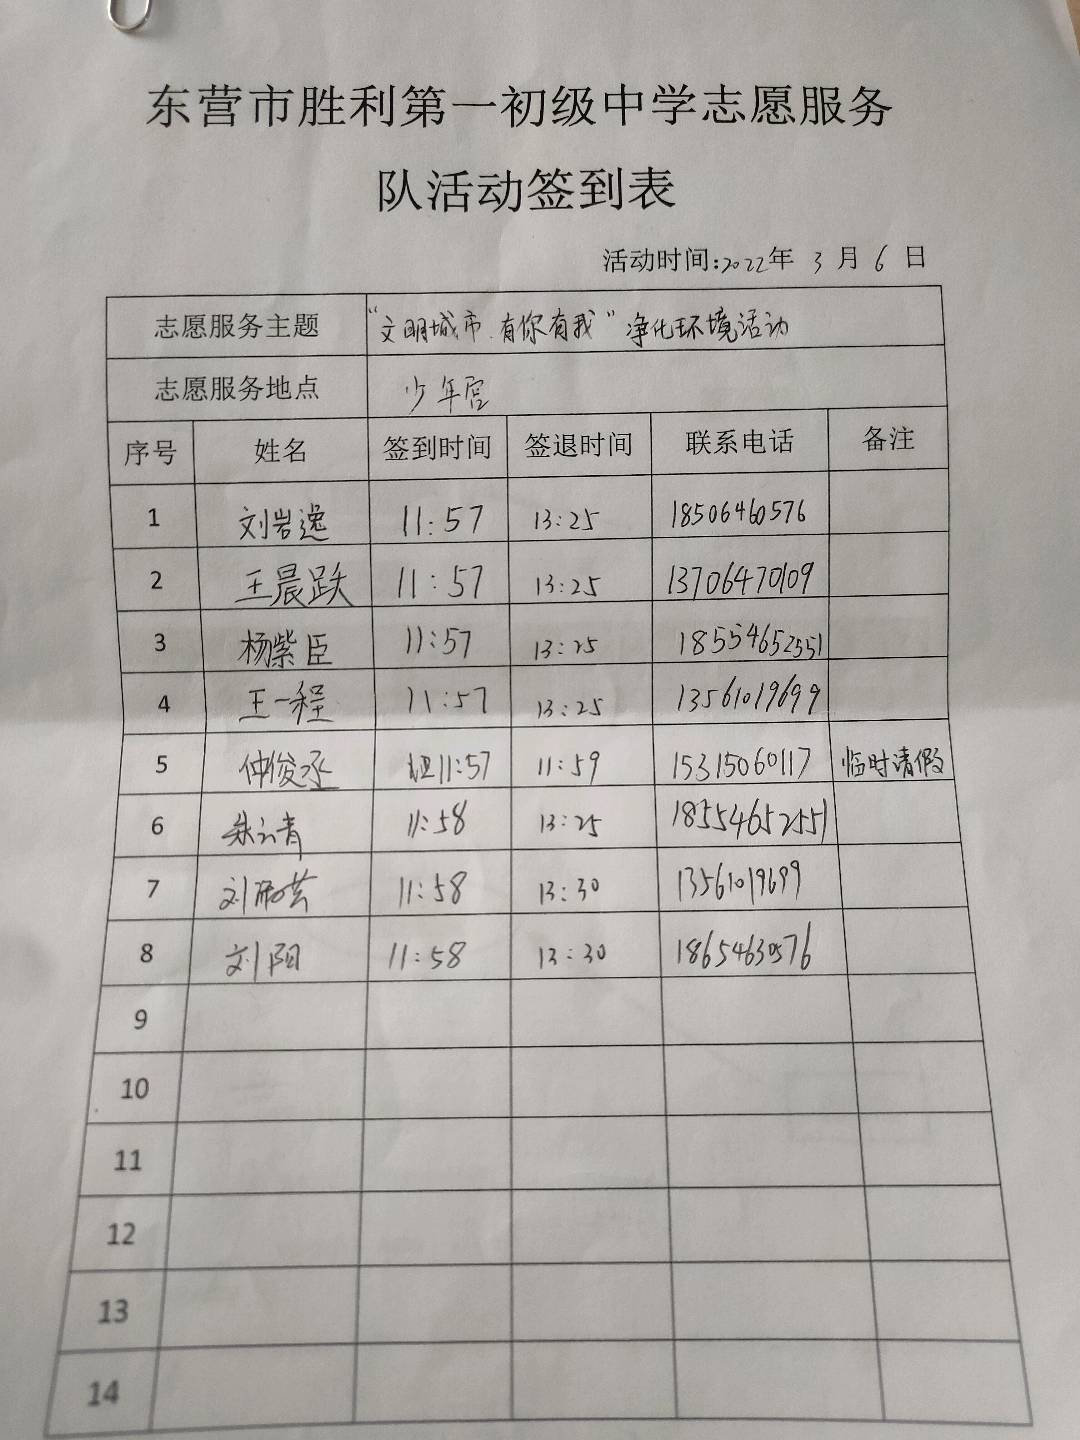 东营市胜利第一初级中学志愿服务
队活动签到表
活动时间:2022年 3 月 6 日
志愿服务主题 “文明城市.有你有我”净化环境活动
志愿服务地点 少年宫
序号 姓名 签到时间 签退时间 联系电话 备注
1 刘岩逸 11:57 13:25 18506460576
2 王晨跃 11:57 13:25 13706470109
3 杨紫臣 11:57 13:25 18554652551
4 王一程 11:57 13:25 13561019699
5 仲俊丞 11:57 11:59 15315060117 临时请假
6 朱云青 11:58 13:25 18554652551
7 刘 11:58 13:30 13561019699
8 刘阳 11:58 13:30 18654630576
9
10
11
12
13
14